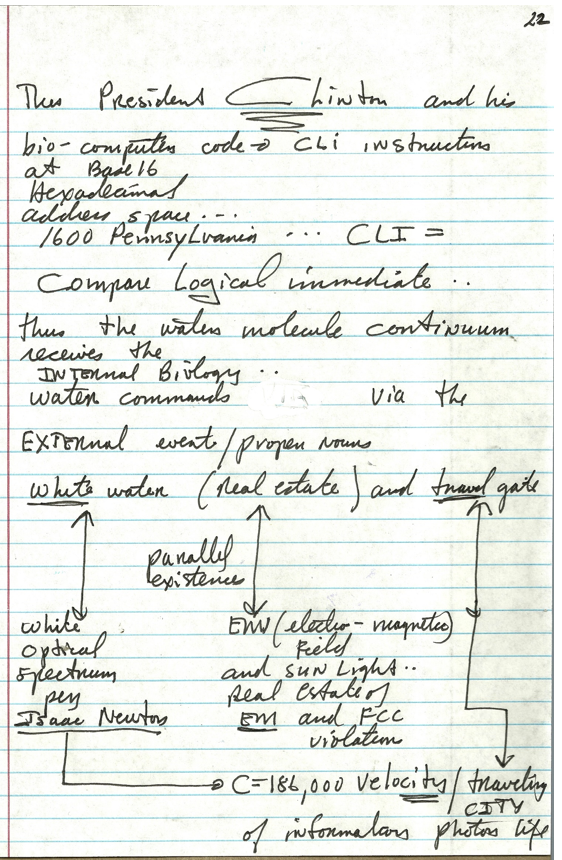 22
Thus President Clinton and his
bio-computer code → CLI instructions
at Base 16
Hexadecimal
address space ...
1600 Pennsylvania ... CLI =
Compare Logical immediate ..
thus the water molecule continuum
receives the
INTERNAL Biology ..
water commands via the
EXTERNAL event/proper nouns
White water (real estate) and travel gate
parallel
existences
white
optical
spectrum
per
Isaac Newton
EMV (electro-magnetic)
Field
and SUN Light ..
Real Estate of
EM and FCC
violation
C=186,000 velocity / traveling
CITY
of information photos life